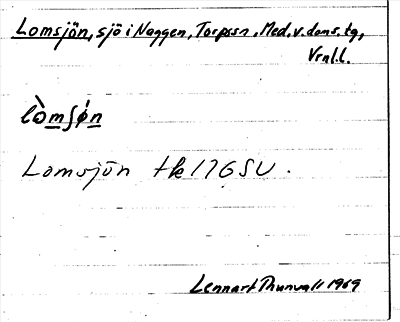 Lomsjön, sjö i Naggen, Torpssn, Med. v. doms. tg,
Vrnl.l.
lòmʃǿn
Lomsjön tk 17G SV.
Lennart Thunvall 1969